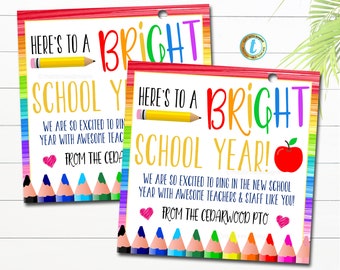 HERE'S TO A
BRIGHT
SCHOOL YEAR!
WE ARE SO EXCITED TO RING IN THE NEW SCHOOL
YEAR WITH AWESOME TEACHERS & STAFF LIKE YOU!
FROM THE CEDARWOOD PTO
HERE'S TO A
BRIGHT
SCHOOL YEAR!
WE ARE SO EXCITED TO RING IN THE NEW SCHOOL
YEAR WITH AWESOME TEACHERS & STAFF LIKE YOU!
FROM THE CEDARWOOD PTO